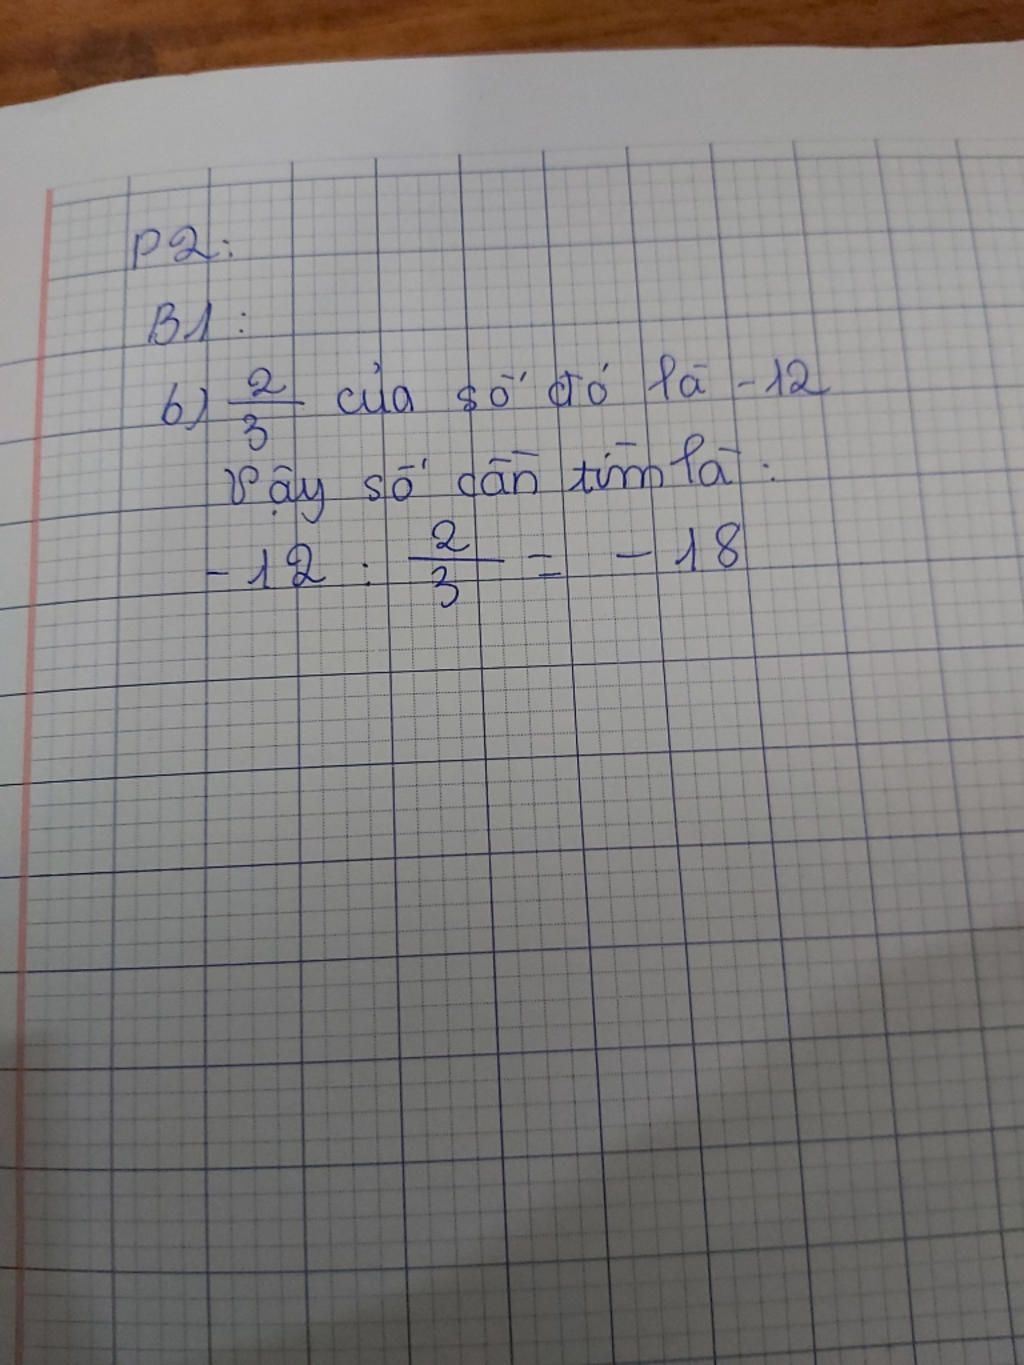 P2:
B1:
b) 2/3 của số đó là -12
Vậy số cần tìm là:
-12 : 2/3 = -18